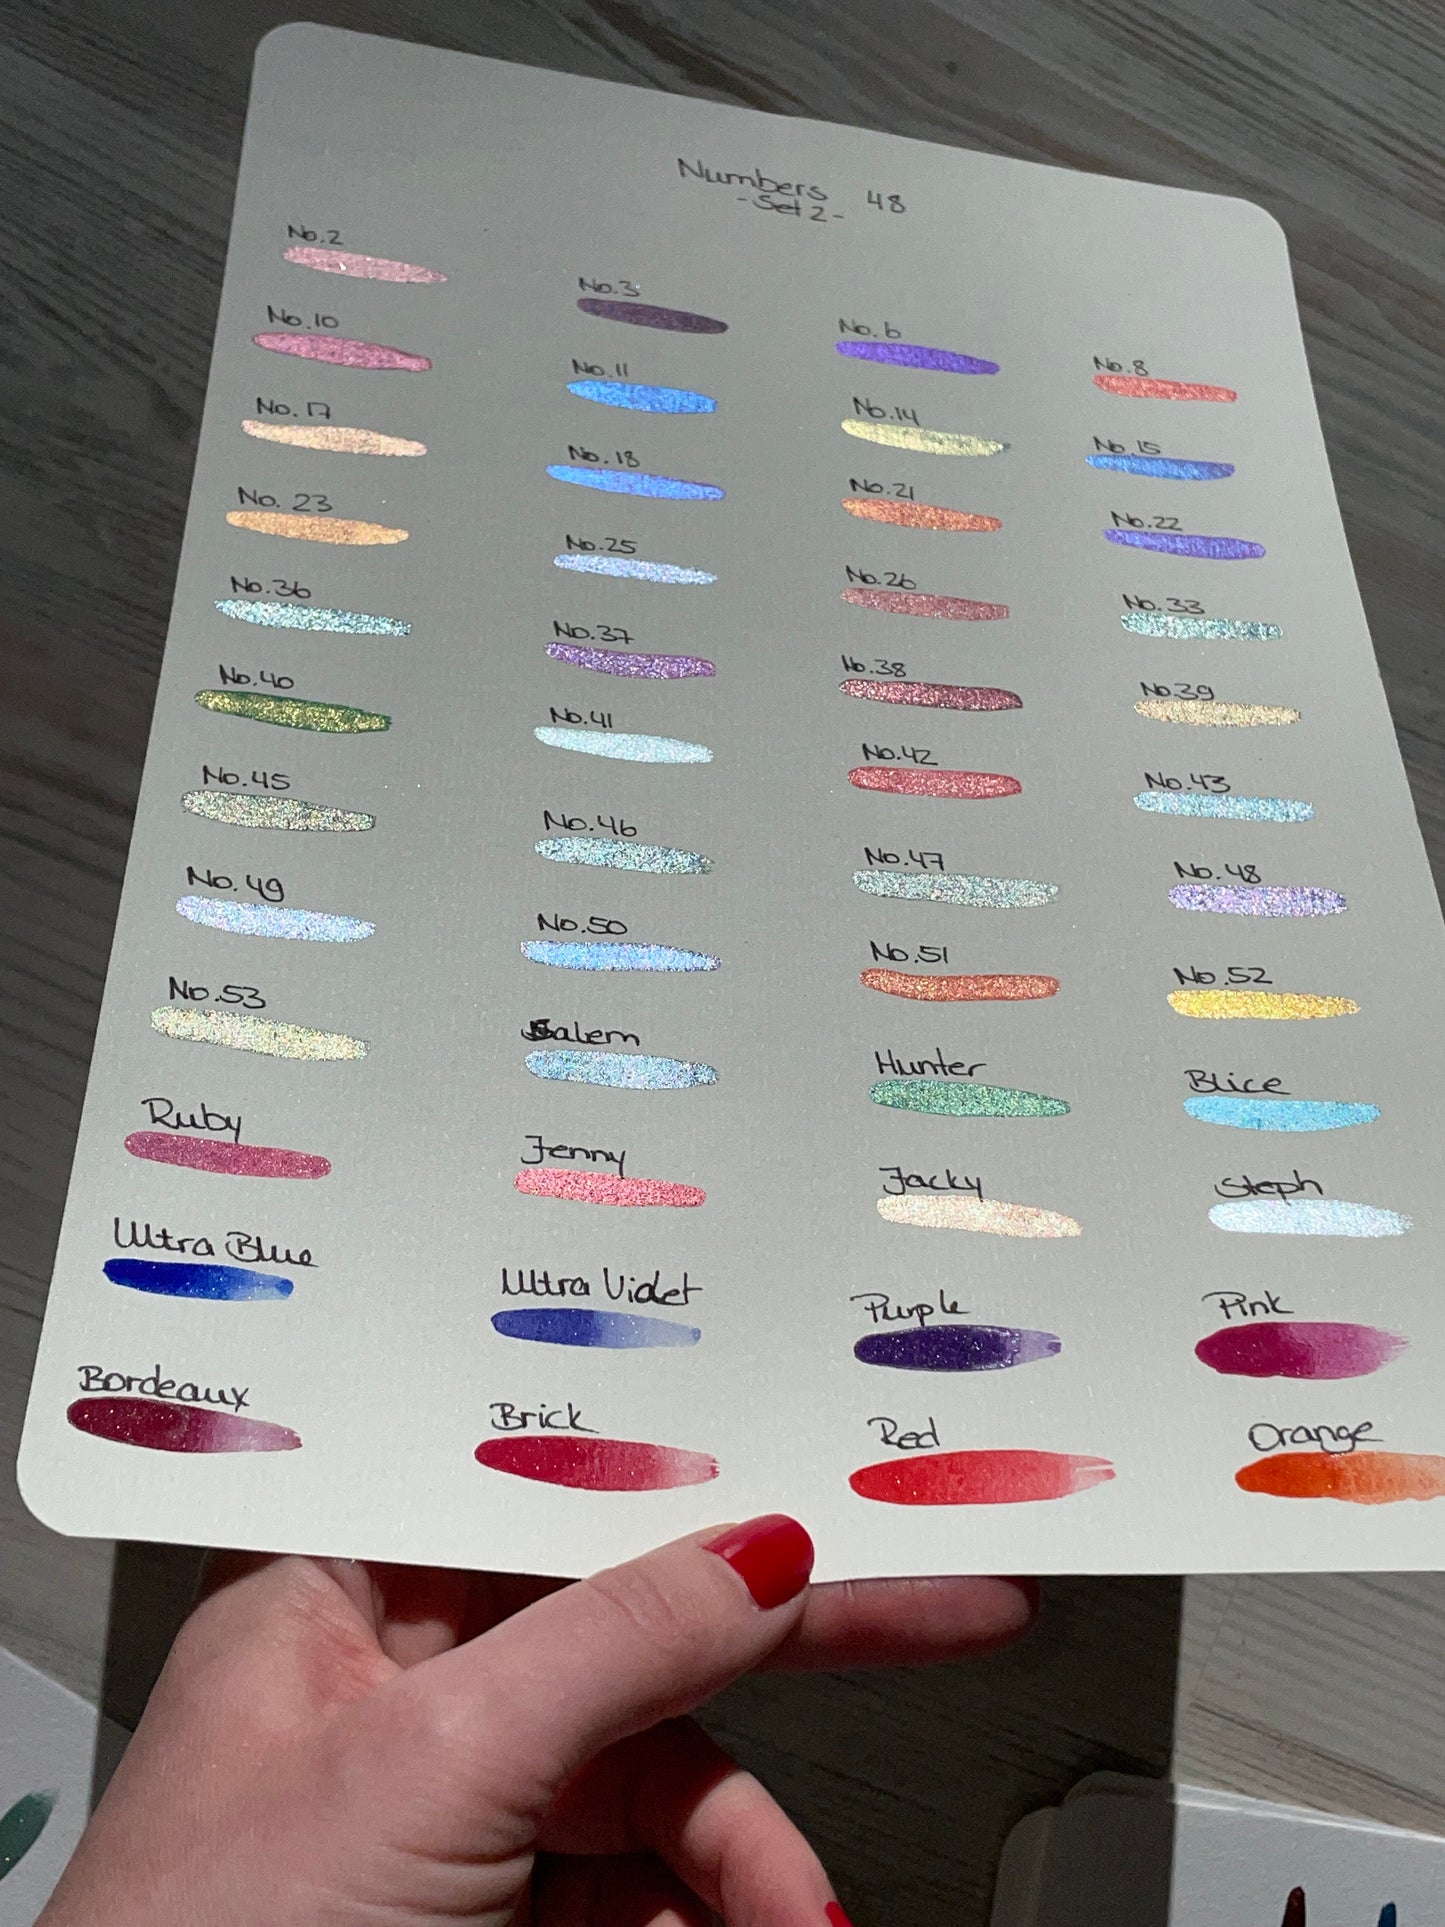 Numbers 48
-Set 2-
No.2
No.3
No.6
No.8
No.10
No.11
No.14
No.15
No.17
No.18
No.21
No.22
No. 23
No.25
No.26
No.33
No.36
No.37
No.38
No.39
No.40
No.41
No.42
No.43
No.45
No.46
No.47
No.48
No.49
No.50
No.51
No.52
No.53
Salem
Hunter
Blice
Ruby
Jenny
Jacky
Steph
Ultra Blue
Ultra Violet
Purple
Pink
Bordeaux
Brick
Red
Orange